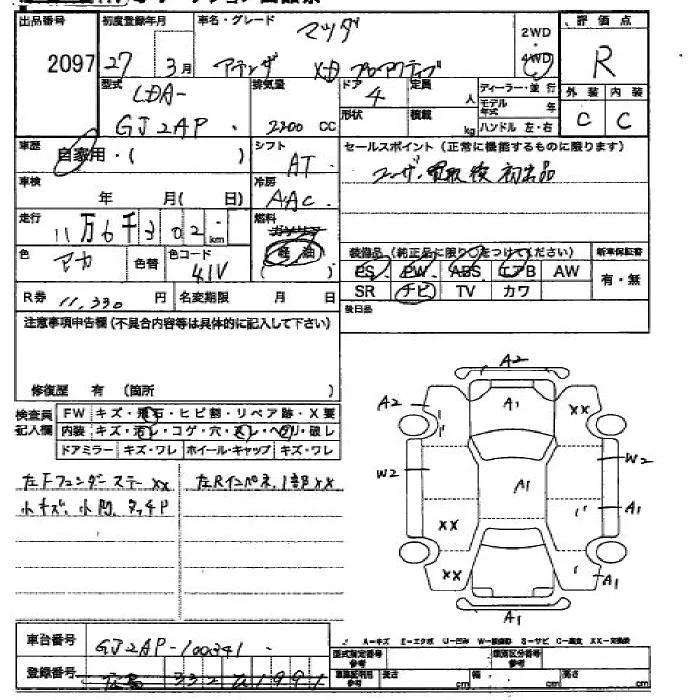 出品番号
2097
初度登録年月
27 3月
車名・グレード
マツダ
アテンザ XD プロアクティブ
2WD
・
4WD
評価点
R
外装 内装
C C
型式
LDA-
GJ2AP
排気量
2200 CC
ドア
4
定員
人
形状
積載
kg
ディーラー・並行
モデル年式 年
ハンドル 左・右
車歴
自家用・( )
シフト
AT
セールスポイント (正常に機能するものに限ります)
ユーザー買取後 初出品
車検
年 月(日)
冷房
AAC
走行
11万6千302km
燃料
ガソリン
軽油
( )
色
マカ
色替
色コード
41V
装備品 (純正品に限り○をつけてください)
PS PW ABS エアB AW
SR ナビ TV カワ
新車保証書
有・無
R券 11,330円
名変期限 月 日
後日品
注意事項申告欄 (不具合内容等は具体的に記入して下さい)
修復歴 有 (箇所 )
検査員
記入欄
FW キズ・飛石・ヒビ割・リペア跡・X要
内装 キズ・汚レ・コゲ・穴・スレ・ヘリ・破レ
ドアミラー キズ・ワレ ホイール・キャップ キズ・ワレ
左Fフェンダーステー xx
小キズ、小凹、タッチP
左Rインパネ、1部xx
A2
A2
A1
xx
W2
W2
A1
A1
xx
xx
A1
A1
車台番号
GJ2AP-100341
登録番号
広島 332 1991
A-キズ E-エクボ U-凹み W-補修跡 S-サビ C-腐食 XX-交換済
型式指定番号
参考
類別区分番号
参考
車庫証明用
参考
長さ cm
幅 cm
高さ cm